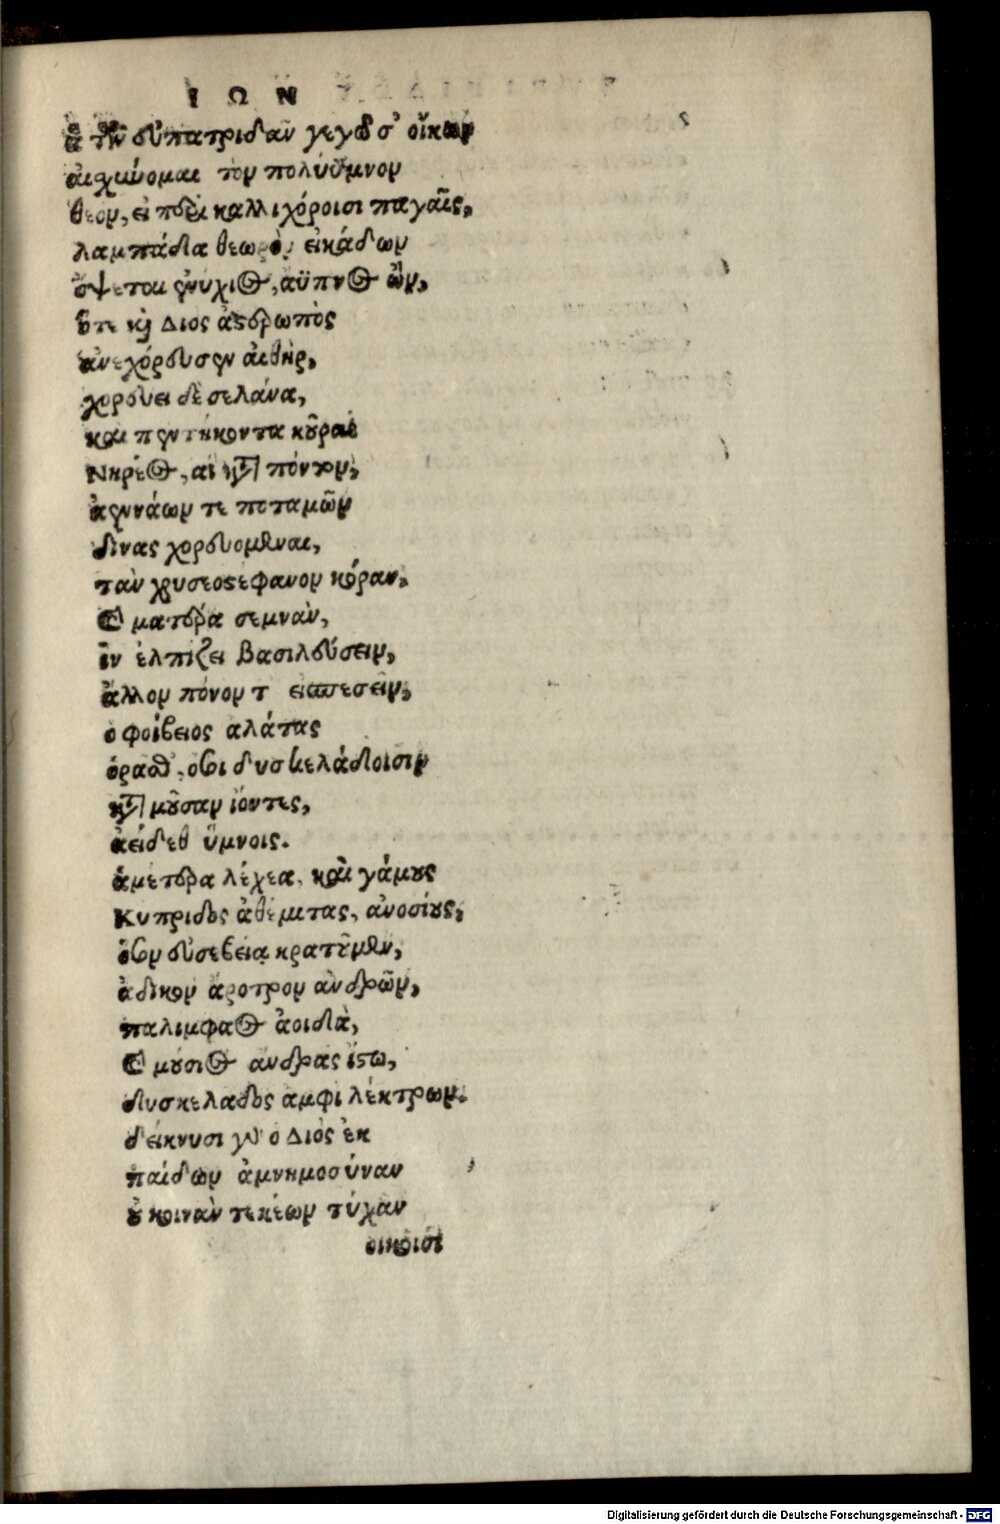 ΙΩΝ
ἁ τῶν εὐπατριδᾶν γεγῶσ' οἴκων
αἰσχύνομαι τὸν πολύϋμνον
θεὸν, εἰ παρὰ καλλιχόροισι παγαῖς,
λαμπάδα θεωρὸν εἰκάδων
ὄψεται ἐννύχιος, ἄϋπνος ὢν,
ὅτε καὶ Διὸς ἀστρωπὸς
ἀνεχόρευσεν αἰθὴρ,
χορεύει δὲ σελάνα,
καὶ πεντήκοντα κοῦραι
Νηρέος, αἱ κατὰ πόντον,
ἀεννάων τε ποταμῶν
δίνας χορευομέναι,
τὰν χρυσεοστέφανον κόραν,
καὶ ματέρα σεμνὰν,
ἵν ἐλπίζει βασιλεύσειν,
ἄλλον πόνον τ εἰσπεσεῖν,
ὁ φοίβειος αλάτας
ὁρᾶθ, ὅσοι δυσκελάδοισιν
κατὰ μοῦσαν ἰόντες,
ἀείδεθ ὕμνοις.
ἁμέτερα λέχεα, καὶ γάμους
Κυπριδος ἀθέμιτας, ανοσίους,
ὅσον εὐσεβείᾳ κρατοῦμεν,
ἄδικον ἄροτρον ἀνδρῶν,
παλιμφαος ἀοιδὰ,
καὶ μούσιος ανδρας ἴστω,
δυσκελαδος αμφὶ λέκτρων.
δείκνυσι γὰρ ὁ Διὸς ἐκ
παίδων ἀμνημοσύναν
οὐ κοινὰν τεκέων τύχαν
οικοισι
Digitalisierung gefördert durch die Deutsche Forschungsgemeinschaft - DFG